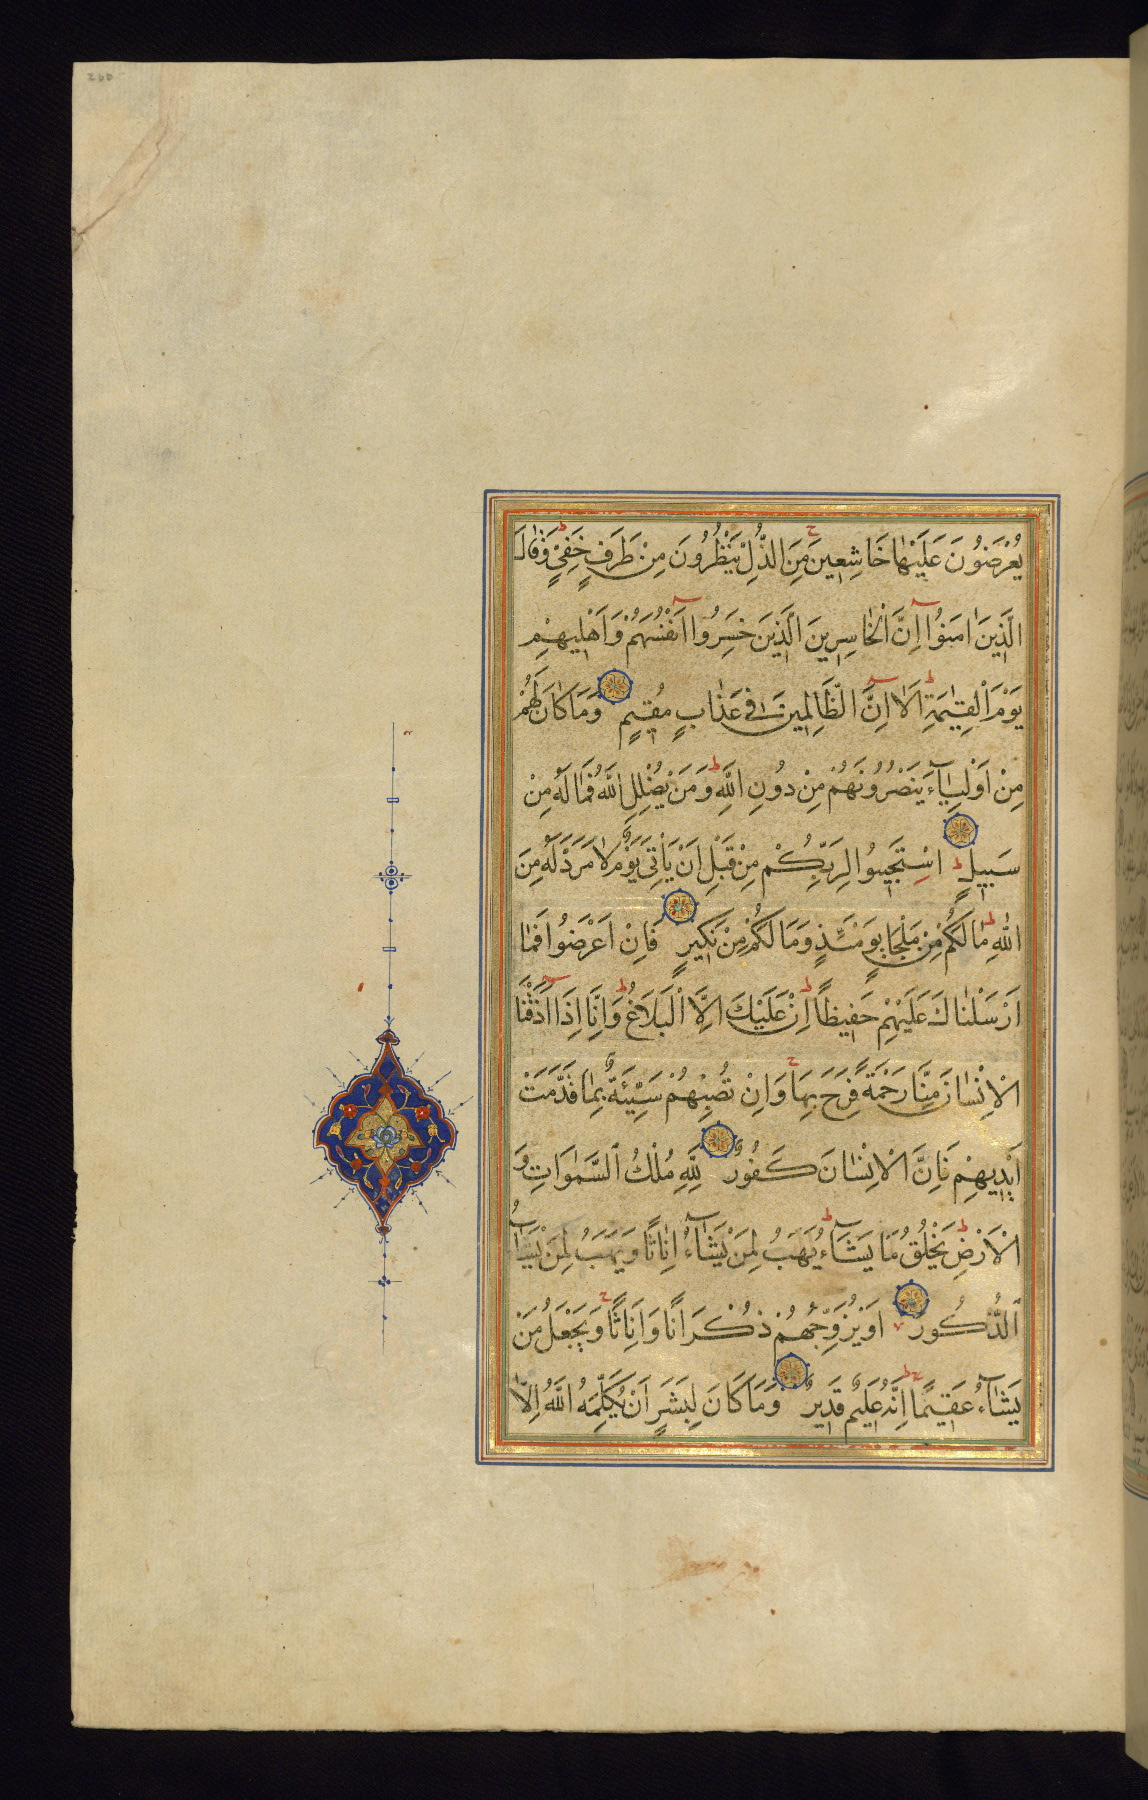 يُعْرَضُونَ عَلَيْهَا خَاشِعِينَ مِنَ الذُّلِّ يَنْظُرُونَ مِنْ طَرَفٍ خَفِيٍّ وَقَالَ
الَّذِينَ اٰمَنُوا اِنَّ الْخَاسِرِينَ الَّذِينَ خَسِرُوا اَنْفُسَهُمْ وَاَهْلِيهِمْ
يَوْمَ الْقِيٰمَةِ اَلَا اِنَّ الظَّالِمِينَ فِي عَذَابٍ مُقِيمٍ وَمَا كَانَ لَهُمْ
مِنْ اَوْلِيَاۤءَ يَنْصُرُونَهُمْ مِنْ دُونِ اللّٰهِ وَمَنْ يُضْلِلِ اللّٰهُ فَمَا لَهُ مِنْ
سَبِيلٍ اسْتَجِيبُوا لِرَبِّكُمْ مِنْ قَبْلِ اَنْ يَاْتِيَ يَوْمٌ لَا مَرَدَّ لَهُ مِنَ
اللّٰهِ مَا لَكُمْ مِنْ مَلْجَإٍ يَوْمَئِذٍ وَمَا لَكُمْ مِنْ نَكِيرٍ فَاِنْ اَعْرَضُوا فَمَا
اَرْسَلْنَاكَ عَلَيْهِمْ حَفِيظًا اِنْ عَلَيْكَ اِلَّا الْبَلَاغُ وَاِنَّا اِذَا اَذَقْنَا
الْاِنْسَانَ مِنَّا رَحْمَةً فَرِحَ بِهَا وَاِنْ تُصِبْهُمْ سَيِّئَةٌ بِمَا قَدَّمَتْ
اَيْدِيهِمْ فَاِنَّ الْاِنْسَانَ كَفُورٌ لِلّٰهِ مُلْكُ السَّمٰوَاتِ وَ
الْاَرْضِ يَخْلُقُ مَا يَشَاۤءُ يَهَبُ لِمَنْ يَشَاۤءُ اِنَاثًا وَيَهَبُ لِمَنْ يَشَاۤءُ
الذُّكُورَ اَوْ يُزَوِّجُهُمْ ذُكْرَانًا وَاِنَاثًا وَيَجْعَلُ مَنْ
يَشَاۤءُ عَقِيمًا اِنَّهُ عَلِيمٌ قَدِيرٌ وَمَا كَانَ لِبَشَرٍ اَنْ يُكَلِّمَهُ اللّٰهُ اِلَّا